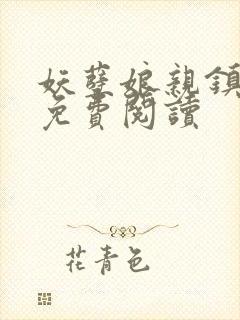 妖孽娘親鎮
免費閱讀
花青色